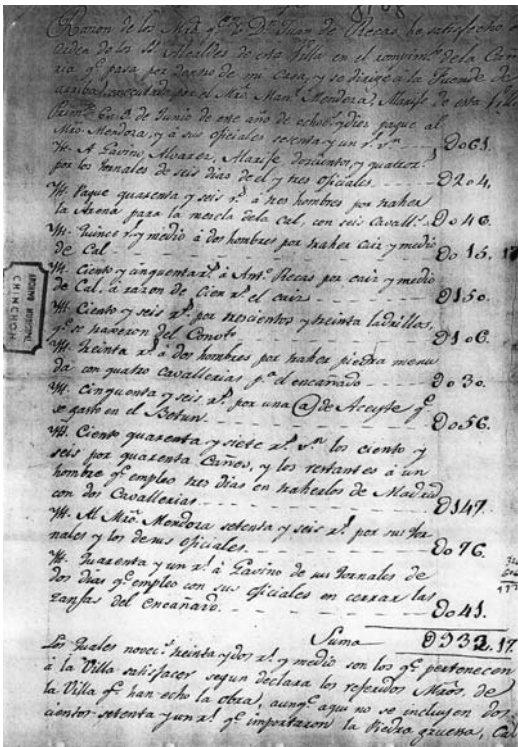 Razon de los Mrs. q.e Yo Dn. Juan de Recas, he satisfecho
dn de los SS. Alcaldes de esta Villa en el rompim.to de la Cañe
ria q.e pasa por dentro de mi casa, y se dirige a la Fuente de
arriba, executado por el Mro. Man.l Mendoza, Alarife de esta Villa
Prim.te En 3 de Junio de este año de echos y diez pague al
Mro. Mendoza, y à sus oficiales sesenta y un r.s v.n Do61.
Yt. A Gavino Alvarez, Alarife, doscientos, y quatro r.s
por los Jornales de seis dias de el y tres oficiales D204,
Yt. Pague quarenta y seis r.s à tres hombres por traher
la Arena para la mezcla dela Cal, con seis Cavall.s Do46.
Yt. Quince r.s y medio à dos hombres por traher caiz y medio
de Cal Do15, 17
Yt. Ciento y cinquenta r.s à Ant.o Recas por caiz y medio
de Cal, à razon de Cien r.s el caiz D150.
Yt. Ciento y seis r.s por trescientos y treinta ladrillos,
q.e se trageron del Conv.to D106.
Yt. Treinta r.s à dos hombres por traher piedra menu
da con quatro cavallerias p.a el encañado Do30.
Yt. Cinquenta y seis r.s por una @ de Aceyte q.e
se gasto en el Betun Do56.
Yt. Ciento quarenta y siete r.s v.n los ciento y
seis por quarenta Caños, y los restantes à un
hombre q.e empleo tres dias en traherlos de Madrid
con dos Cavallerias D147.
Yt. Al Mro. Mendoza setenta y seis r.s por sus Jor
nales y los de sus oficiales. Do76.
Yt. Quarenta y un r.s à Gavino de sus Jornales de
dos dias q.e empleo con sus oficiales en cerrar las
zanjas del encañado. Do41.
Suma D932.17.
Los quales novec.s treinta y dos r.s y medio son los q.e pertenecen
à la Villa satisfacer segun declara los referidos Mros. de
la Villa q.e han echo la obra, aunq.e aqui no se incluyen dos
cientos setenta y un r.s q.e importaron la Piedra gruesa, Cal
ARCHIVO MUNICIPAL
CHINCHON